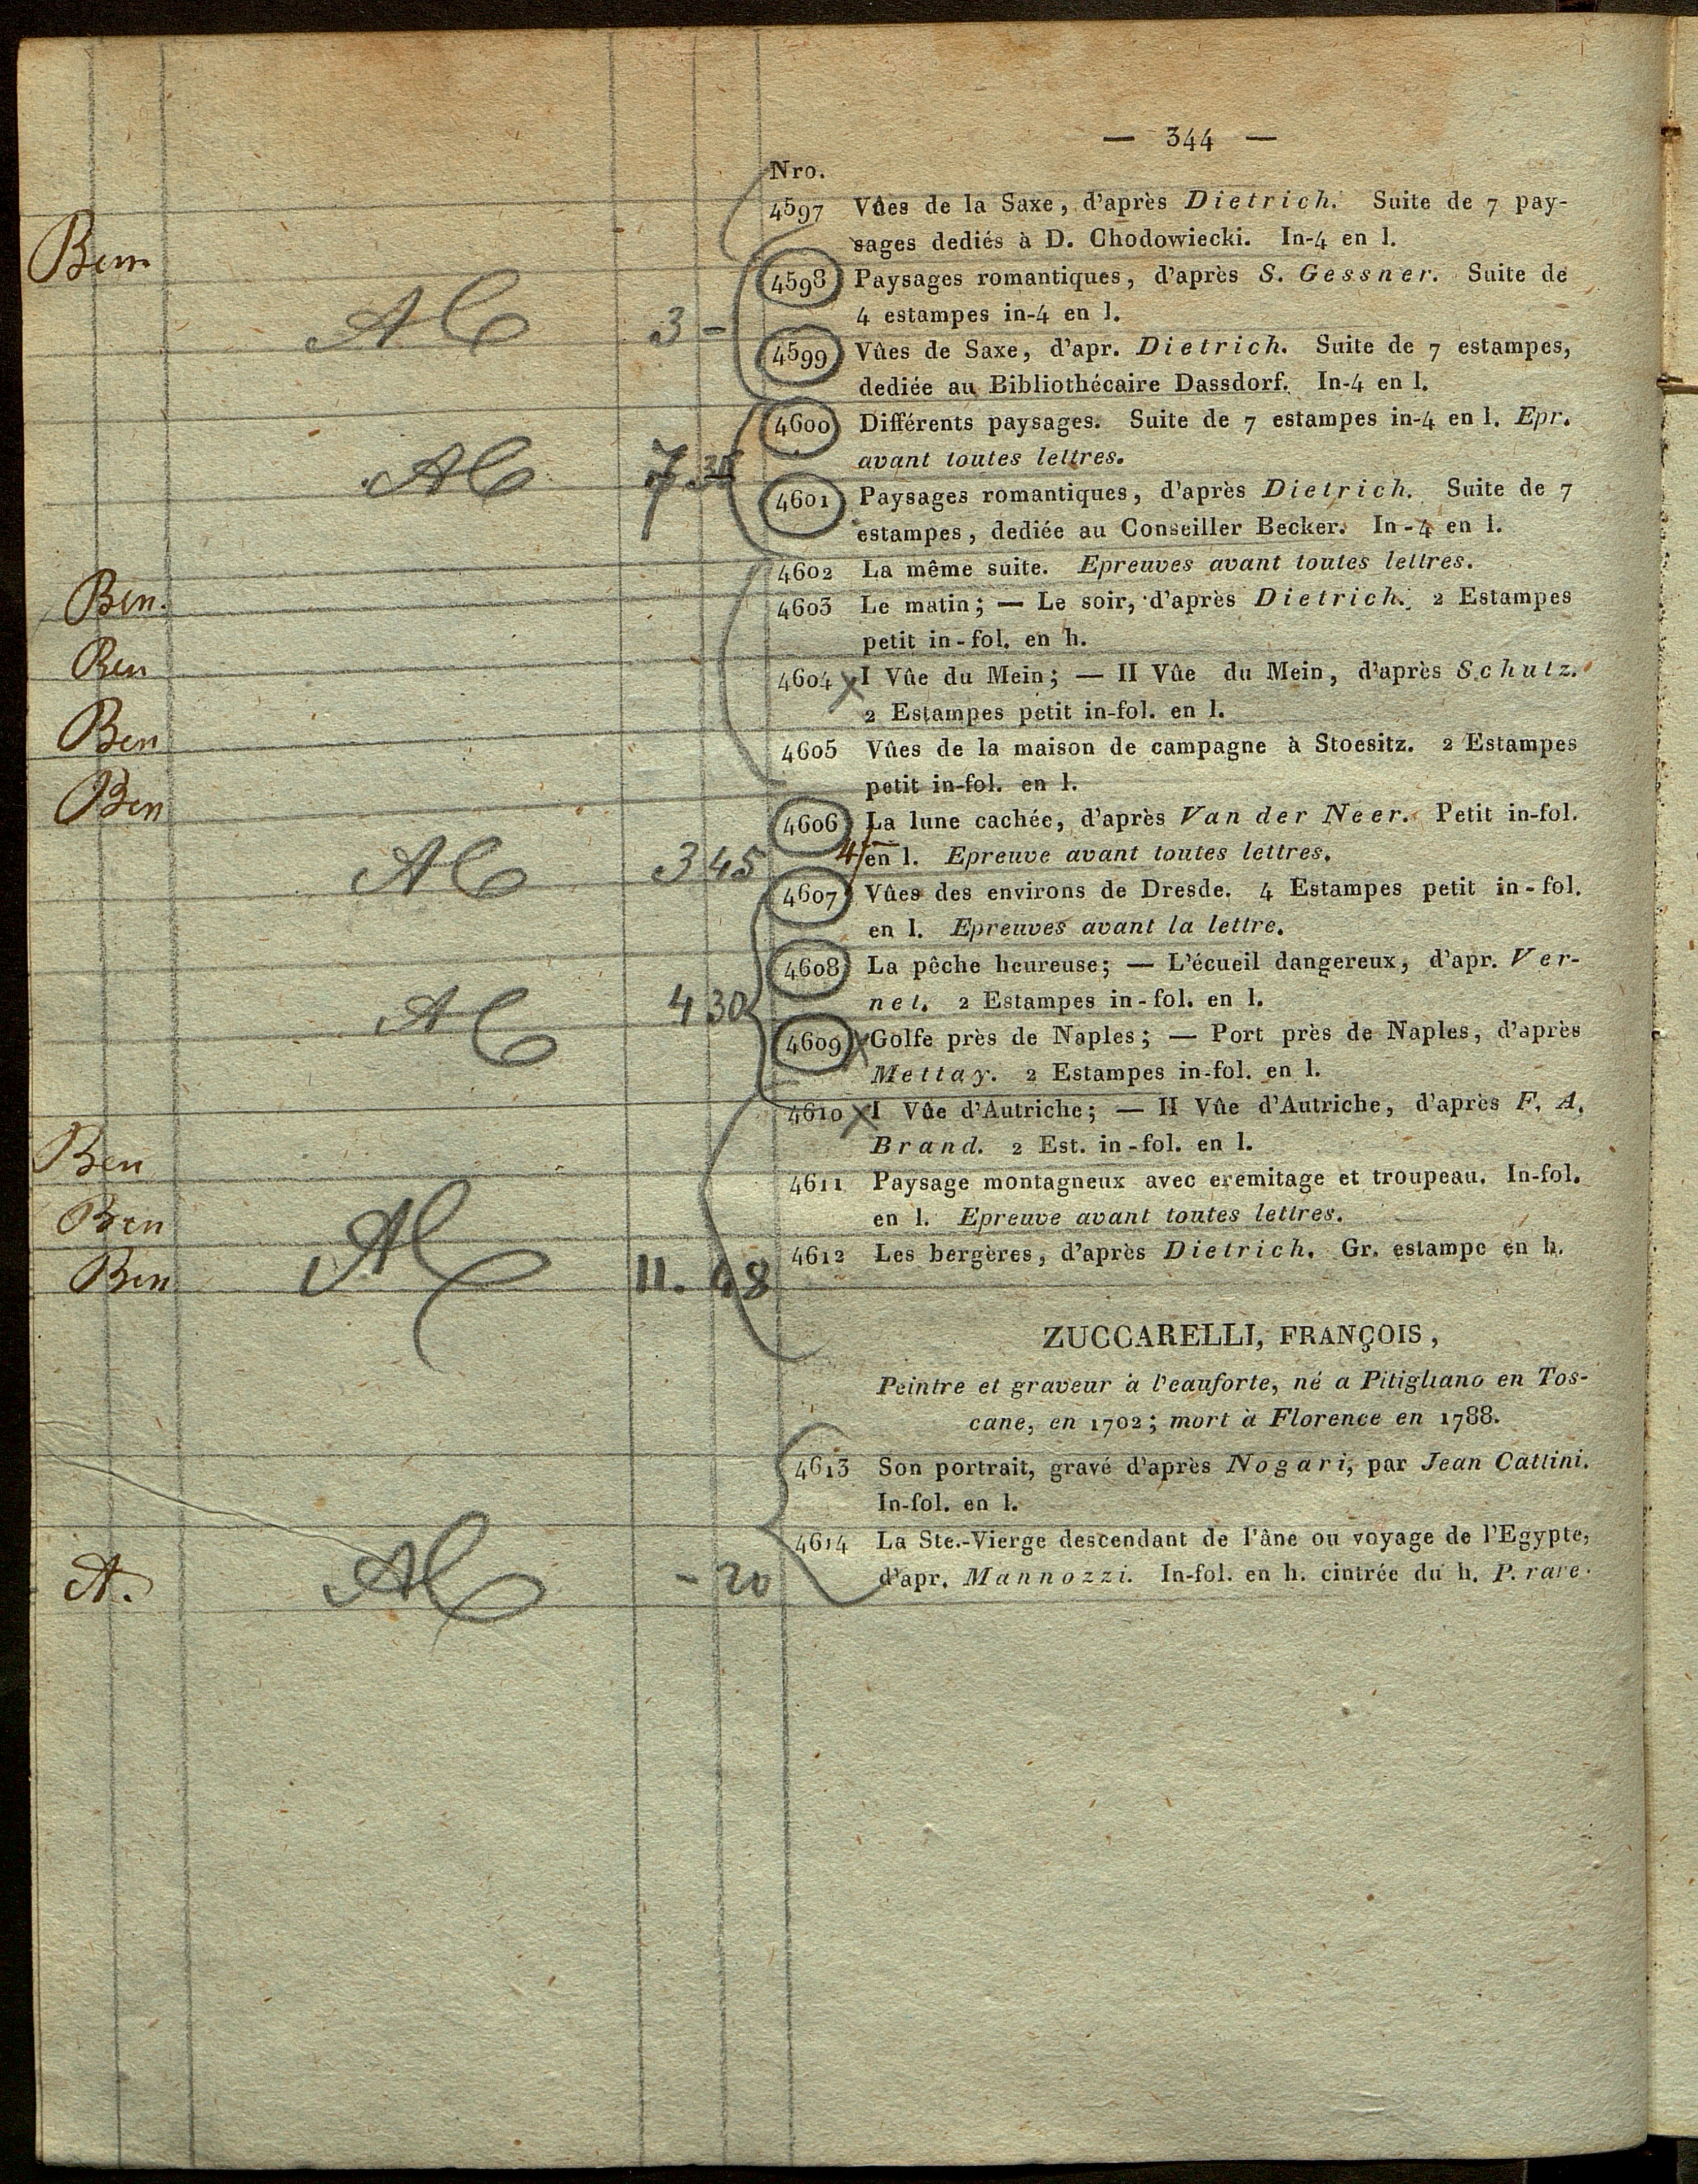 — 344 —
Nro.
4597 Vûes de la Saxe, d'après Dietrich. Suite de 7 pay-
sages dediés à D. Chodowiecki. In-4 en l.
Ben
4598 Paysages romantiques, d'après S. Gessner. Suite de
4 estampes in-4 en l.
3 –
4599 Vûes de Saxe, d'apr. Dietrich. Suite de 7 estampes,
dediée au Bibliothécaire Dassdorf. In-4 en l.
4600 Différents paysages. Suite de 7 estampes in-4 en l. Epr.
avant toutes lettres.
7
4601 Paysages romantiques, d'après Dietrich. Suite de 7
estampes, dediée au Conseiller Becker. In-4 en l.
4602 La même suite. Epreuves avant toutes lettres.
Ben.
4603 Le matin; — Le soir, d'après Dietrich. 2 Estampes
petit in-fol. en h.
Ben
4604 I Vûe du Mein; — II Vûe du Mein, d'après Schutz.
2 Estampes petit in-fol. en l.
Ben
4605 Vûes de la maison de campagne à Stoesitz. 2 Estampes
petit in-fol. en l.
Ben
4606 La lune cachée, d'après Van der Neer. Petit in-fol.
en l. Epreuve avant toutes lettres.
3 45
4607 Vûes des environs de Dresde. 4 Estampes petit in-fol.
en l. Epreuves avant la lettre.
4608 La pêche heureuse; — L'écueil dangereux, d'apr. Ver-
net. 2 Estampes in-fol. en l.
4 30
4609 Golfe près de Naples; — Port près de Naples, d'après
Mettay. 2 Estampes in-fol. en l.
4610 I Vûe d'Autriche; — II Vûe d'Autriche, d'après F. A.
Brand. 2 Est. in-fol. en l.
Ben
4611 Paysage montagneux avec eremitage et troupeau. In-fol.
en l. Epreuve avant toutes lettres.
Ben
4612 Les bergères, d'après Dietrich. Gr. estampe en h.
Ben
11. 48
ZUCCARELLI, FRANÇOIS,
Peintre et graveur à l'eauforte, né a Pitigliano en Tos-
cane, en 1702; mort à Florence en 1788.
4613 Son portrait, gravé d'après Nogari, par Jean Cattini.
In-fol. en l.
4614 La Ste.-Vierge descendant de l'âne ou voyage de l'Egypte,
d'apr. Mannozzi. In-fol. en h. cintrée du h. P. rare.
A.
– 20